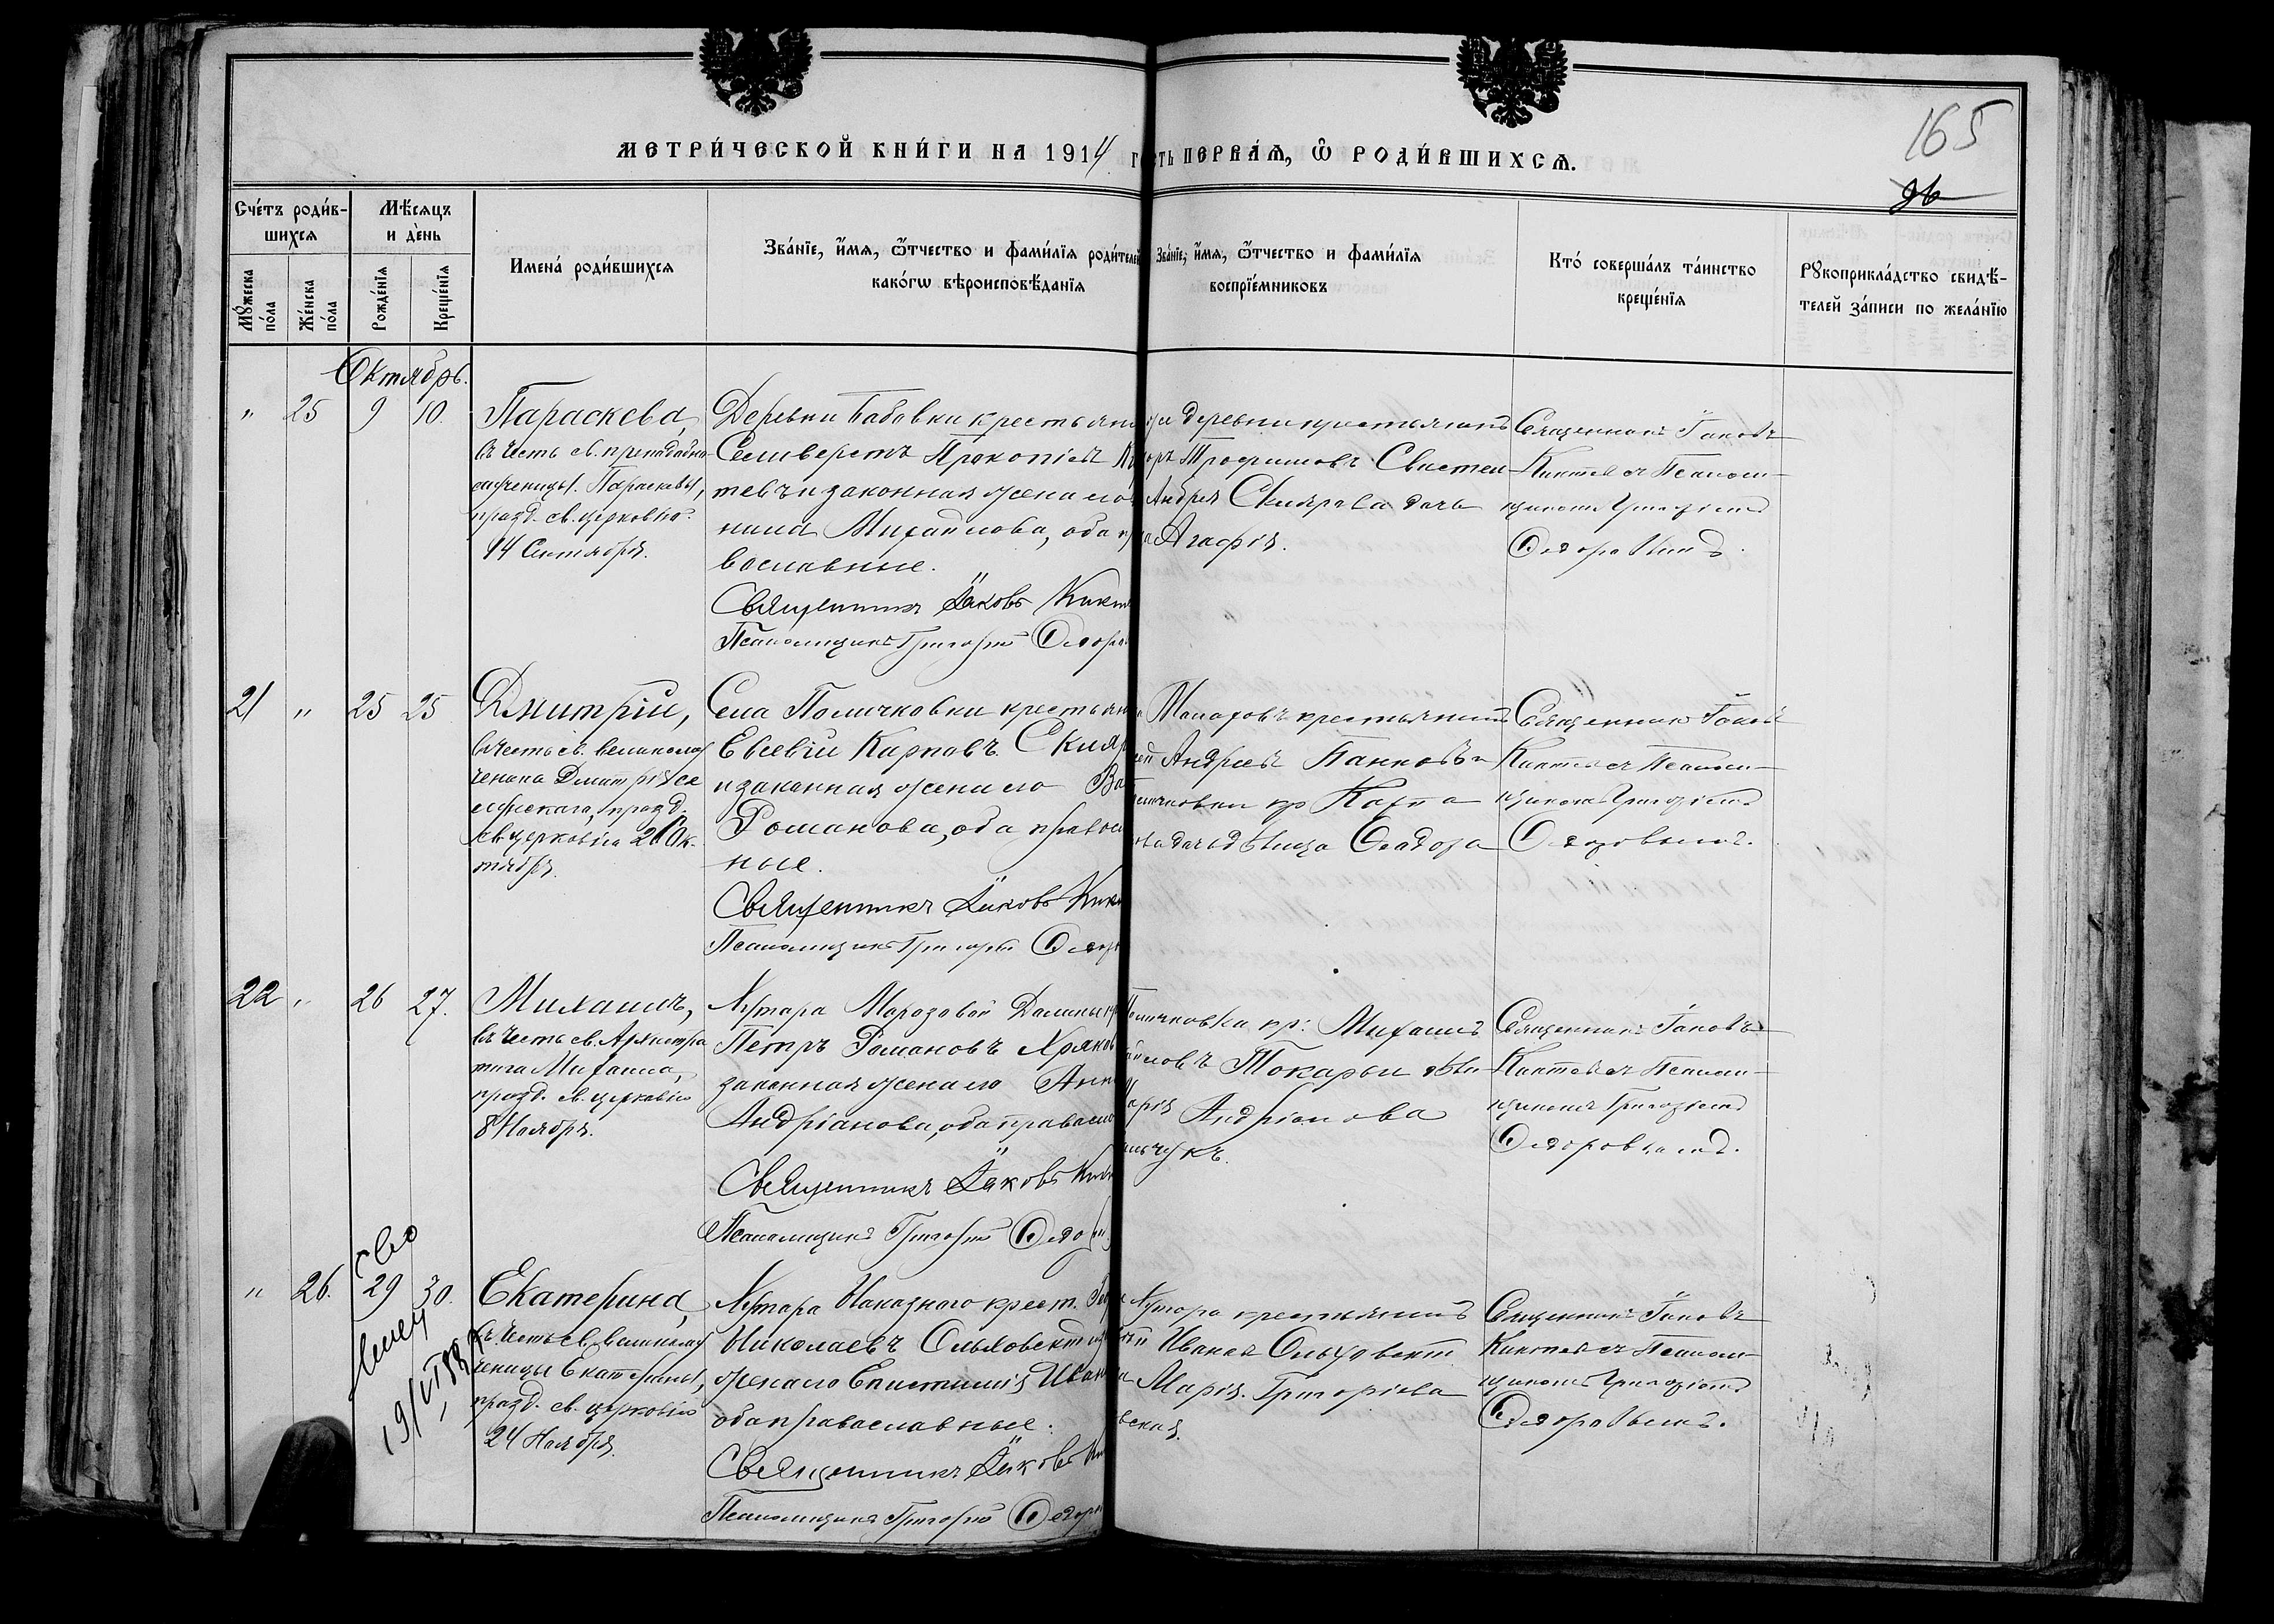 165
96
МЕТРИ́ЧЕСКОЙ КНИ́ГИ НА 1914 г
сть ПЕРВА́Я, Ѡ҆ РОДИ́ВШИХСЯ.
Сче́тъ роди́в-
шихся
Мѣ́сяцъ
и де́нь
Мꙋ́жеска
по́ла
Же́нска
по́ла
Рожде́нїя
Креще́нїя
Имена́ роди́вшихся
Зва́нїе, и҆́мя, ѻ҆́тчество и фами́лїя роди́телей
како́гѡ вѣроисповѣ́данїя
Зва́нїе, и҆́мя, ѻ҆́тчество и фами́лїя
воспрїе́мниковъ
Кто́ соверша́лъ та́инство
креще́нїя
Рꙋкоприкла́дство свидѣ́-
телей за́писи по жела́нїю
Октябрь.
" 25 9 10.
Параскева,
въ честь св. преподобно-
мученицы Параскевы,
празд. св. церковію
14 Октября.
Деревни Бабовки крестьяни
Селиверстъ Прокопіевъ
тевъ и законная жена его
нила Михайлова, оба пр
вославные.
Священникъ Іаковъ Кикт
Псаломщикъ Григорій Ѳедоро
же деревни крестьянинъ
оръ Трофимовъ Свистел
Андрея Склярова дочь
Агафія.
Священникъ Іаковъ
Киктевъ съ Псалом-
щикомъ Григоріемъ
Ѳедоровымъ.
21 " 25 25
Дмитрій,
въ честь св. великому
ченика Дмитрія се
лунскаго, празд.
св. церковію 26 Ок-
тября.
Села Поличковки крестьян
Евсевій Карповъ Скляр
и законная жена его Ва
Романова, оба правосл
ные.
Священникъ Іаковъ Кик
Псаломщикъ Григорій Ѳедор
Макаровъ крестьянинъ
ей Андреевъ Панковъ и
личковки кр Карпа
ва дочь дѣвица Ѳеодора
Священникъ Іаковъ
Киктевъ съ Псалом-
щикомъ Григоріемъ
Ѳедоровымъ.
22 " 26 27.
Михаилъ,
въ честь св. Архистра
тига Михаила,
празд. св. церковію
8 Ноября.
Хутора Морозовой Долины кр
Петръ Романовъ Хряков
законная жена его Анн
Андріанова, оба правосл
Священникъ Іаковъ Кик
Псаломщикъ Григорій Ѳедор
Поличковки кр: Михаилъ
йловъ Токарь и дѣви
Марія Андріанова
льчукъ.
Священникъ Іаковъ
Киктевъ съ Псалом-
щикомъ Григоріемъ
Ѳедоровымъ.
" 26. 29 30.
Екатерина,
въ честь св. великому
ченицы Екатерины,
празд. св. церковію
24 Ноября.
Хутора Наказного крест.
Николаевъ Ольховскій
жена его Епистимія Иван
оба православные.
Священникъ Іаковъ Кик
Псаломщикъ Григорій Ѳедоро
Хутора крестьянинъ
Иванъ Ольховскій
Марія Григоріева
вская.
Священникъ Іаковъ
Киктевъ съ Псалом-
щикомъ Григоріемъ
Ѳедоровымъ.